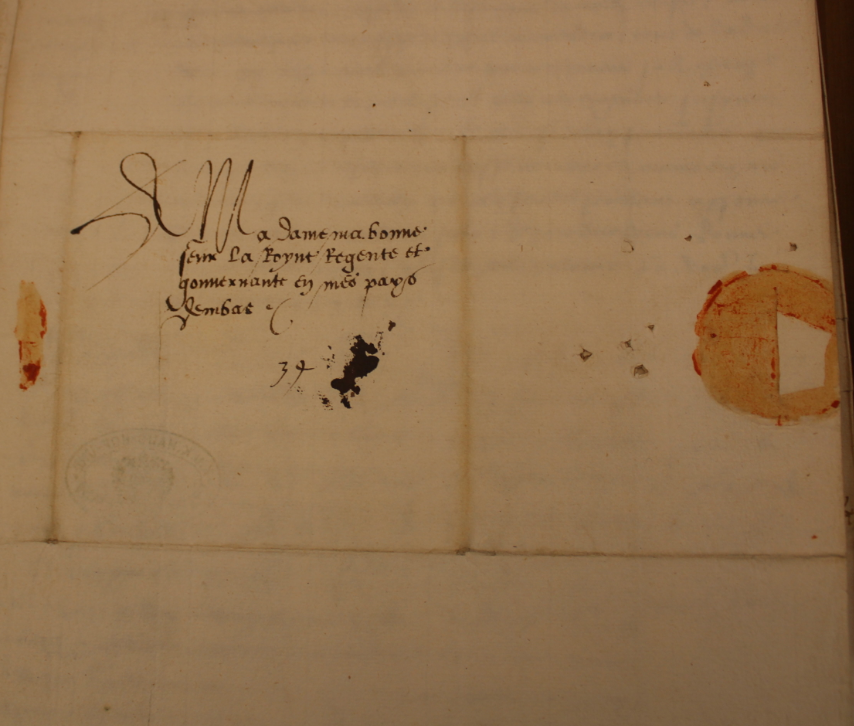 A Madame ma bonne
seur La Royne Regente et
gouuernante en mes pays
Dembas
34